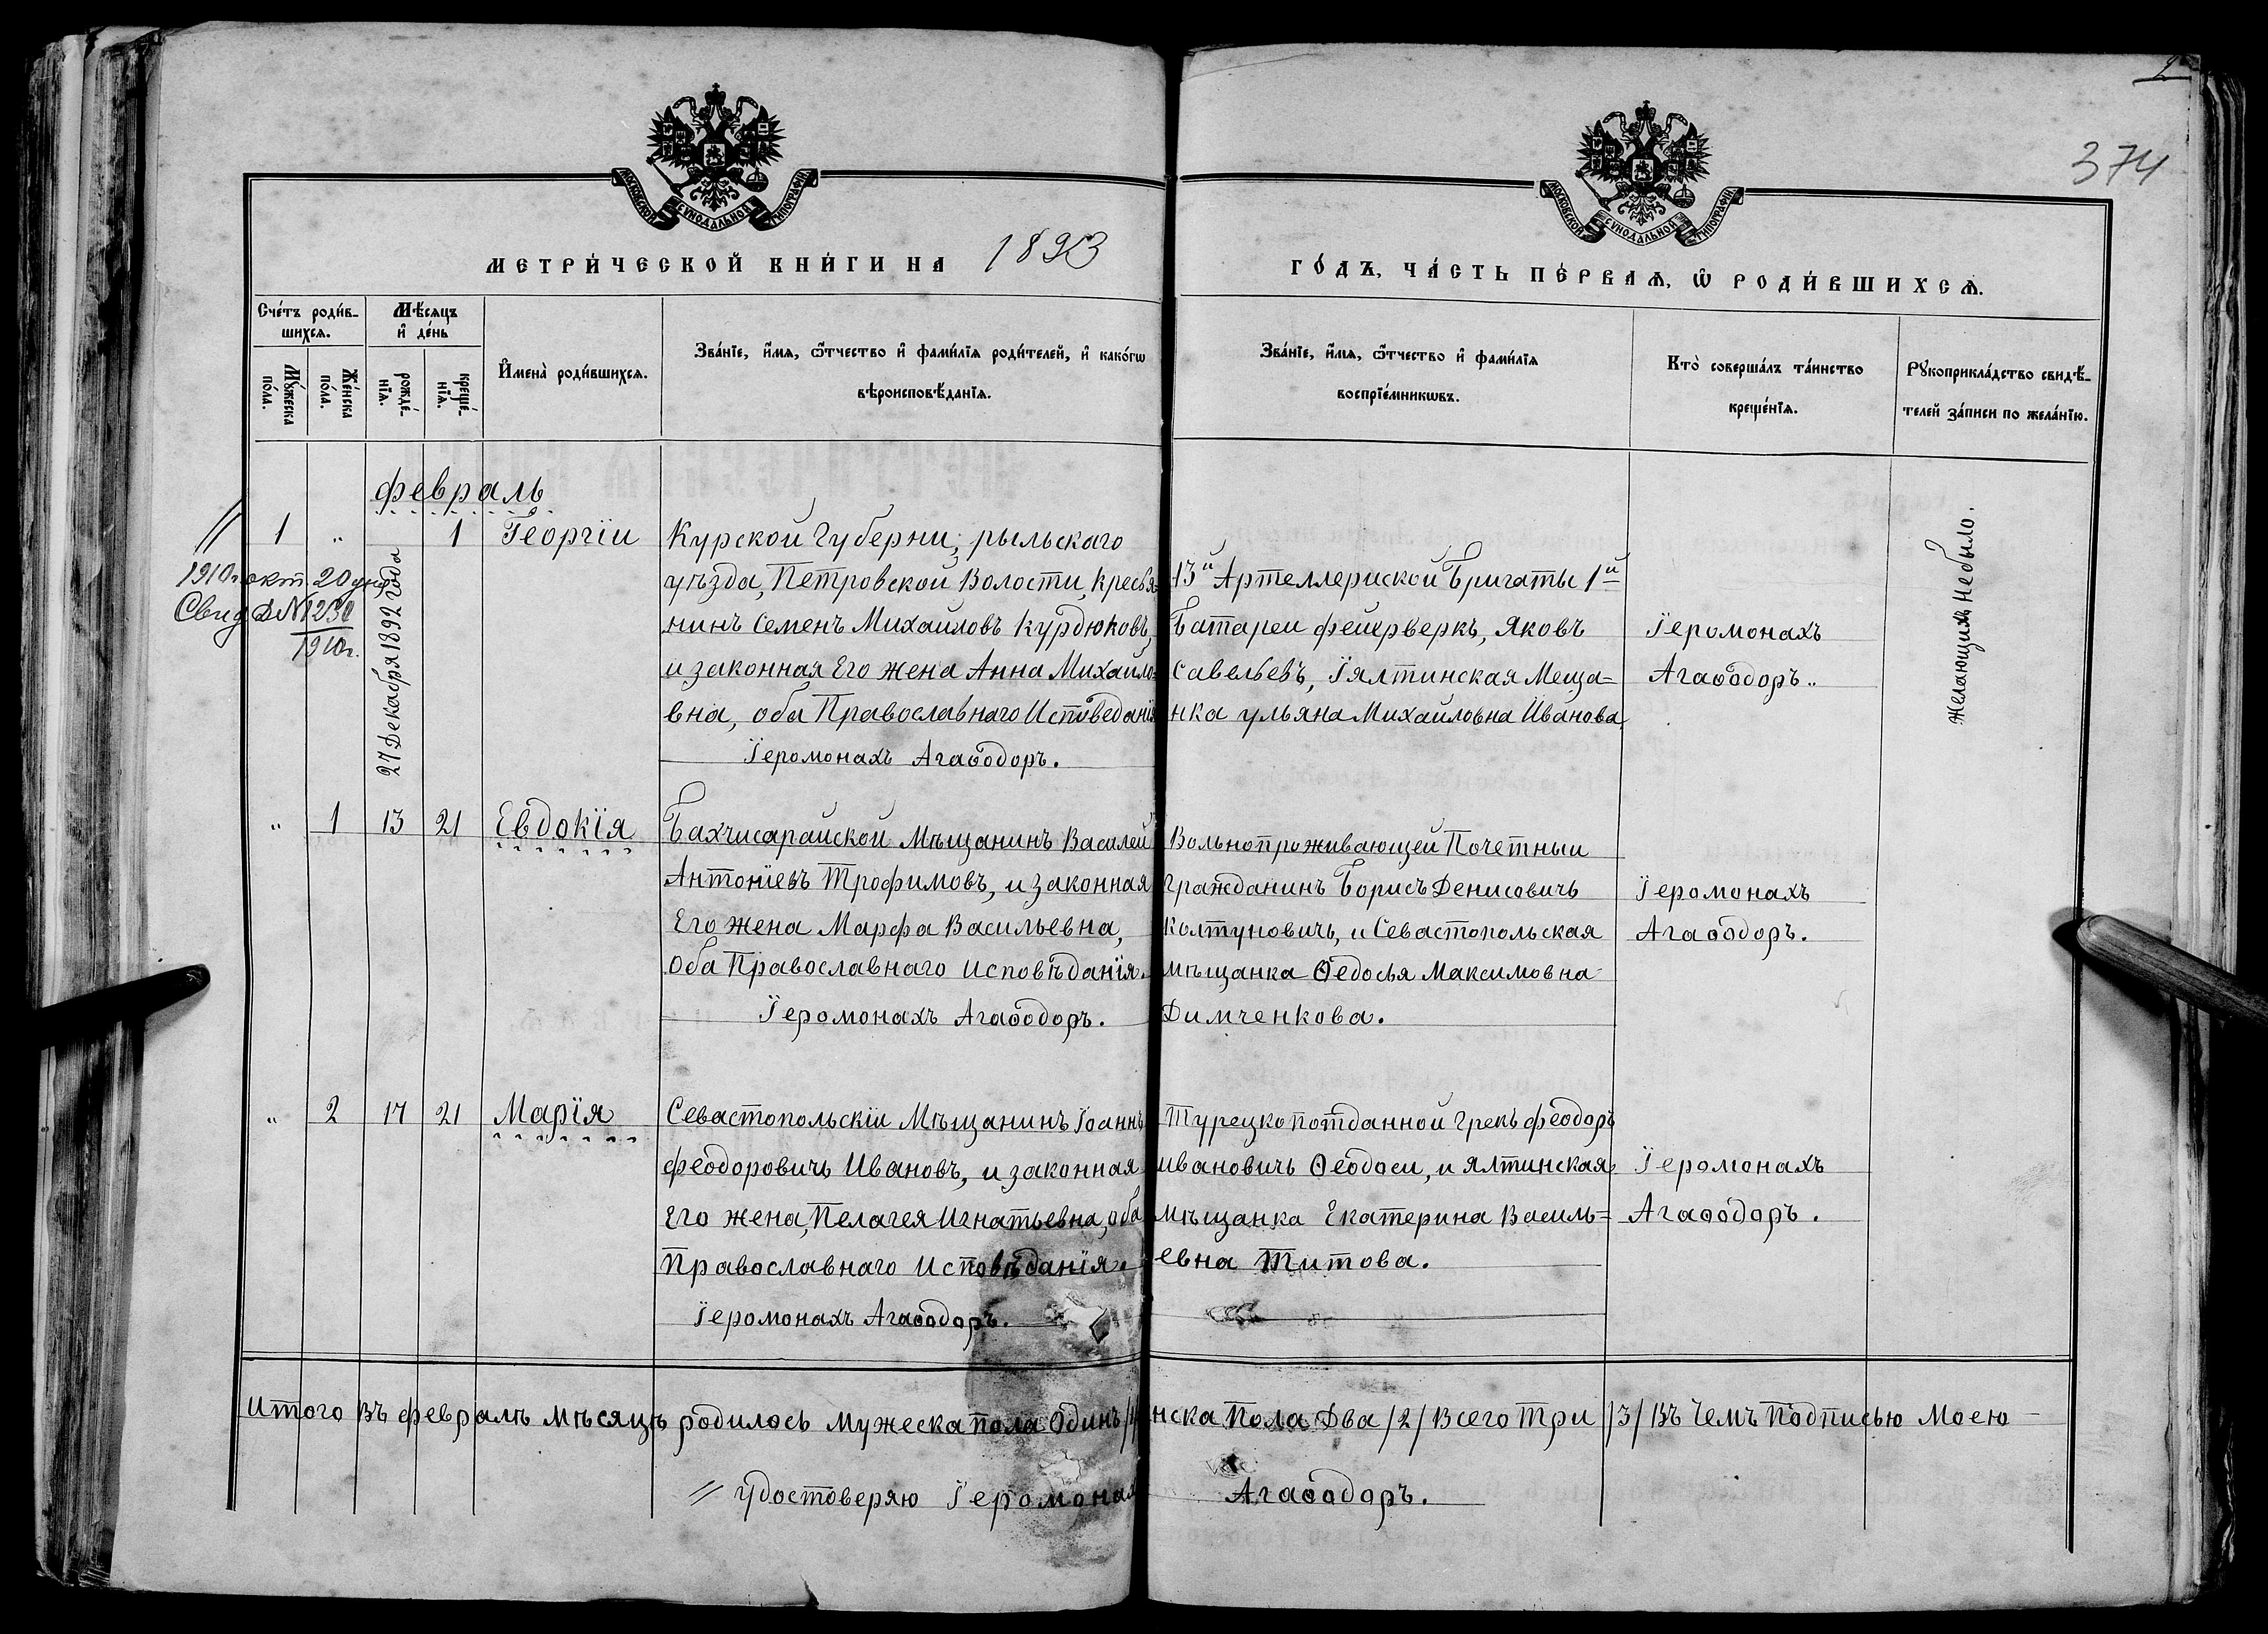 2
374
МОСКОВСКОЙ СѴНОДАЛЬНОЙ ТИПОГРАФІИ
МОСКОВСКОЙ СѴНОДАЛЬНОЙ ТИПОГРАФІИ
МЕТРИ́ЧЕСКОЙ КНИ́ГИ НА 1893
ГО́ДЪ, ЧА́СТЬ ПЕ́РВАѦ, Ѽ РОДИ́ВШИХСѦ.
Сче́тъ роди́в-
шихсѧ.
Мѣ́сѧцъ
и҆ де́нь
Мꙋ́жеска
по́ла.
Же́нска
по́ла.
рожде́-
нїѧ.
креще́-
нїѧ.
И҆мена̀ роди́вшихсѧ.
Зва́нїе, и҆́мѧ, ѻ҆́тчество и҆ фами́лїѧ роди́телей, и҆ како́гѡ
вѣроисповѣ́данїѧ.
Зва́нїе, и҆́мѧ, ѻ҆́тчество и҆ фами́лїѧ
воспрїе́мникѡвъ.
Кто̀ соверша́лъ та́инство
креще́нїѧ.
Рꙋкоприкла́дство свидѣ́-
телей за́писи по жела́нїю.
февраль
1 „ 27 Декабря 1892 года 1 Георгіи
1910г. окт. 20 дня
Свид Д№
1910г.
Курской Губерни, рыльскаго
уѣзда, Петровской Волости, Кресьѧ-
нинъ Семенъ Михаиловъ Курдюковъ,
и законная Его жена Анна Михаило-
вна, оба Православнаго Исповеданія
Іеромонахъ Агаѳодоръ.
13й Артеллериской Бригаты 1й
Батареи фейерверкъ, Яковъ
Савельевъ, Іялтинская Меща=
нка ульяна Михаиловна Иванова,
Іеромонахъ
Агаѳодоръ.
Желающихъ Небыло.
„ 1 13 21 Евдокія
Бахчисарайской Мѣщанинъ Василей
Антоніевъ Трофимовъ, и законная
Его жена Марфа Васильевна,
Оба Православнаго исповѣданія.
Іеромонахъ Агаѳодоръ.
Вольнопроживающей Почетныи
гражданинъ Борисъ Денисовичь
Колтуновичь, и Севастопольская
мѣщанка Ѳедосья Максимовна
Димченкова.
Іеромонахъ
Агаѳодоръ.
„ 2 17 21 Марія
Севастопольскіи Мѣщанинъ Іоаннъ
Феодоровичь Ивановъ, и законная
Его жена, Пелагея Игнатьевна, оба
Православнаго Исповѣданія.
Іеромонахъ Агаѳодоръ.
Турецкопотданной Грекъ Феодоръ
ивановичь Ѳеодоси, и ялтинская
мѣщанка Екатерина Василь=
евна Титова.
Іеромонахъ
Агаѳодоръ.
Итого Въ февралѣ мѣсяцѣ родилось мужеска пола Одинъ /1/ нска Пола Два /2/ Всего Три /3/ Въ Чемъ Подписью Моею
удостоверяю Іеромонах Агаѳодоръ.